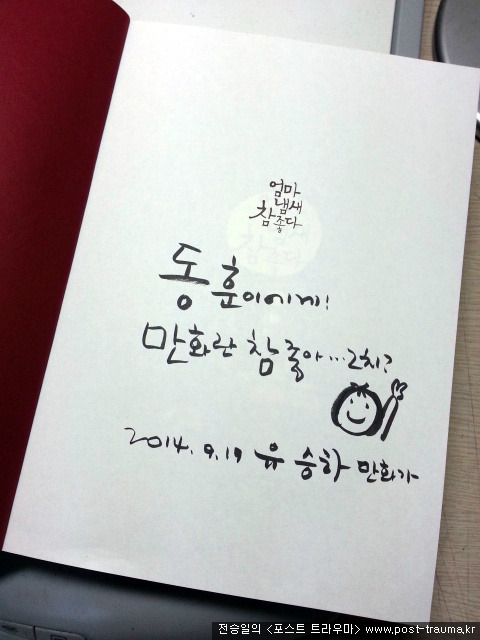 엄마
냄새
참좋다
동훈이에게!
만화란 참 좋아...그치?
2014. 9. 19 유승하 만화가
전승일의 <포스트 트라우마> www.post-trauma.kr